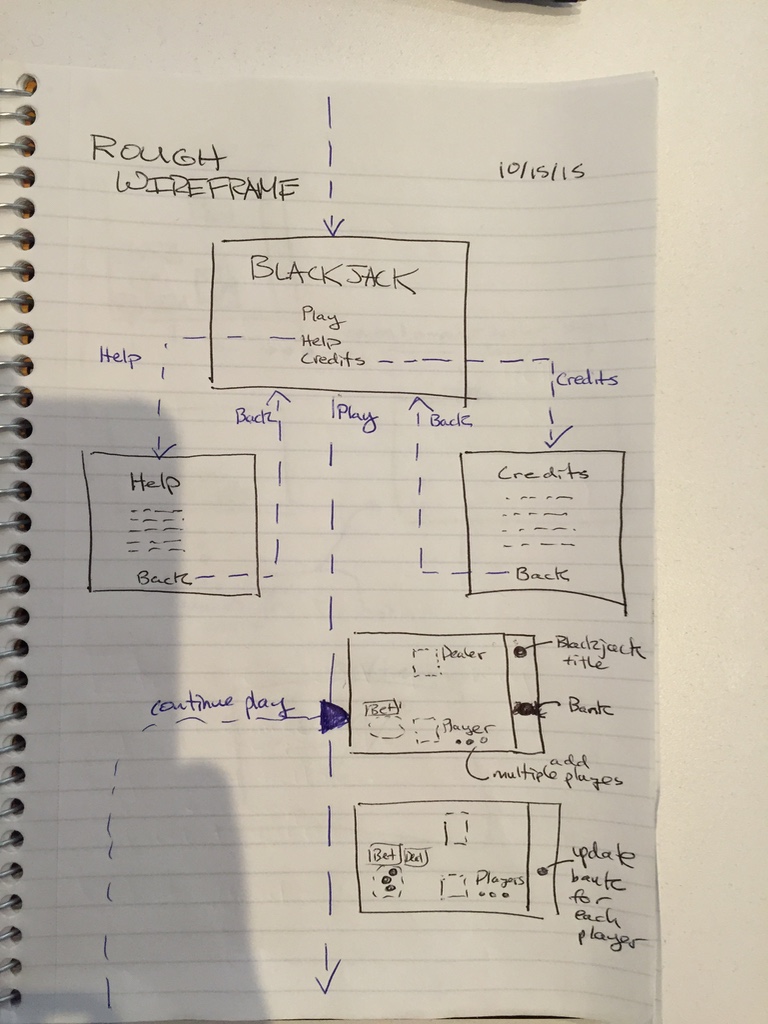 ROUGH
WIREFRAME
10/15/15
BLACKJACK
Play
Help
Credits
Help
Credits
Back
Play
Back
Help
Back
Credits
Back
Dealer
Blackjack
title
Bet
Bank
Player
continue play
add
multiple players
Bet
Deal
Players
update
bank
for
each
player